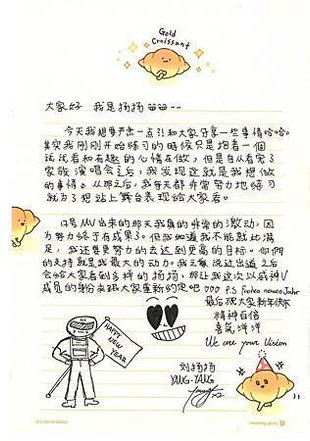 Gold
Croissant
大家好 我是扬扬
今天我想要严肃一点 和大家分享一些事情哈哈。
其实我刚刚开始练习的时候只是抱着一個
试试看和有趣的心情在做，但是自从看完了
家族演唱会之后，我发现这就是我想做
的事情。从那之后，我每天都非常努力地练习
就为了想站上舞台表现给大家看。
MV 出来的那天我真的非常的激动，因
为努力终于有成果了。但我知道我不能就此满
足，我还要更努力的去达到更高的目标。你們
的支持就是我最大的动力。
会給大家看到多样的扬扬，那让我这次以威神V
成员的身份来跟大家重新约定吧 P.S Frohes neues Jahr
最后祝大家新年快乐
精神百倍
喜氣洋洋
We are your Vision
HAPPY
NEW
YEAR
刘扬扬
YANG-YANG